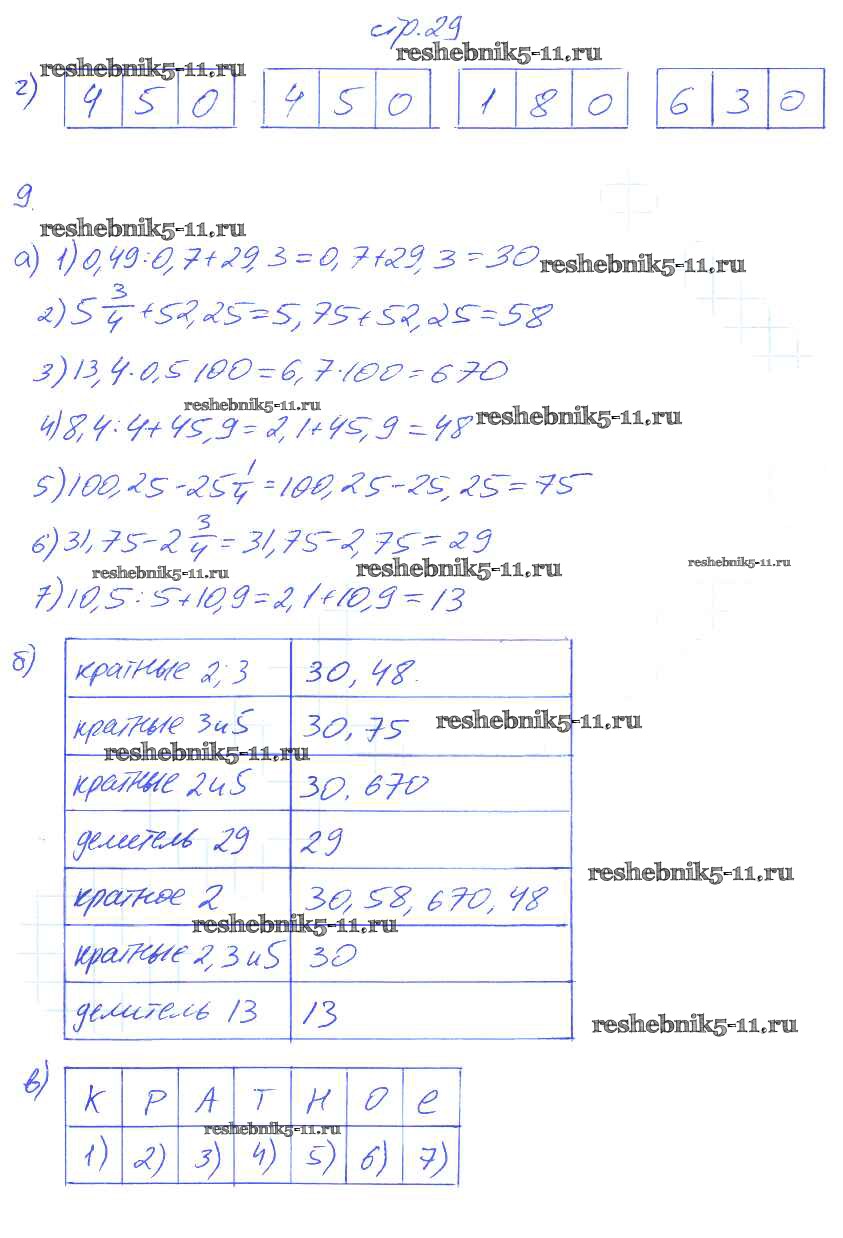 стр.29
reshebnik5-11.ru
reshebnik5-11.ru
г) 4 5 0 4 5 0 1 8 0 6 3 0
9.
reshebnik5-11.ru
а) 1) 0,49:0,7+29,3=0,7+29,3=30
reshebnik5-11.ru
2) 5 3/4 +52,25=5,75+52,25=58
3) 13,4·0,5 100=6,7·100=670
reshebnik5-11.ru
4) 8,4:4+45,9=2,1+45,9=48
reshebnik5-11.ru
5) 100,25-25 1/4 =100,25-25,25=75
6) 31,75-2 3/4 =31,75-2,75=29
reshebnik5-11.ru
reshebnik5-11.ru
reshebnik5-11.ru
7) 10,5:5+10,9=2,1+10,9=13
б) кратные 2; 3 30, 48.
кратные 3 и 5 30, 75
reshebnik5-11.ru
reshebnik5-11.ru
кратные 2 и 5 30, 670
делитель 29 29
reshebnik5-11.ru
кратное 2 30, 58, 670, 48
reshebnik5-11.ru
кратные 2, 3 и 5 30
делитель 13 13
reshebnik5-11.ru
в) К Р А Т Н О е
reshebnik5-11.ru
1) 2) 3) 4) 5) 6) 7)